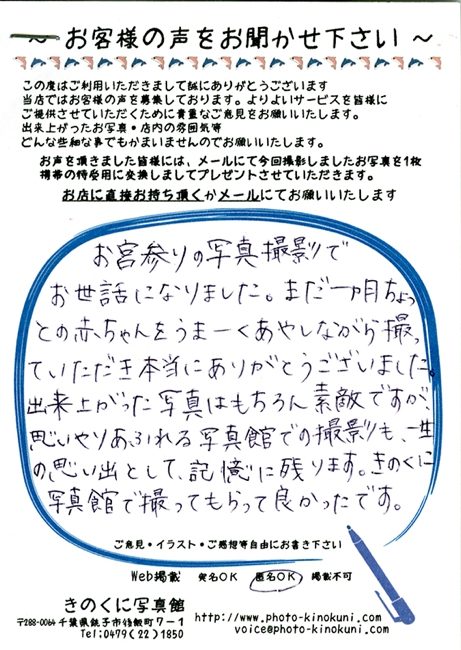 ～ お客様の声をお聞かせ下さい ～
この度はご利用いただきまして誠にありがとうございます
当店ではお客様の声を募集しております。よりよいサービスを皆様に
ご提供させていただくために貴重なご意見をお願いいたします。
出来上がったお写真・店内の雰囲気等
どんな些細な事でもかまいませんのでお願いいたします。
お声を頂きました皆様には、メールにて今回撮影しましたお写真を1枚
携帯の待受用に変換しましてプレゼントさせていただきます。
お店に直接お持ち頂くかメールにてお願いいたします
お宮参りの写真撮影で
お世話になりました。まだ一ヵ月ちょっ
との赤ちゃんをうまーくあやしながら撮っ
ていただき本当にありがとうございました。
出来上がった写真はもちろん素敵ですが、
思いやりあふれる写真館での撮影も、一生
の思い出として、記憶に残ります。きのくに
写真館で撮ってもらって良かったです。
ご意見・イラスト・ご感想等自由にお書き下さい
Web掲載 実名OK 匿名OK 掲載不可
きのくに写真館
〒288-0064 千葉県銚子市 町7-1
Tel:0479(22)1850
http://www.photo-kinokuni.com/
voice@photo-kinokuni.com